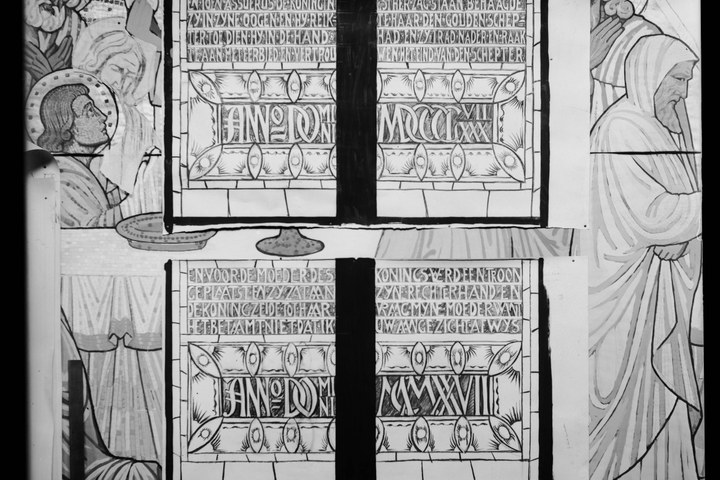 TOEN ASSUERUS DE KONINGIN
STER ZAG STAAN BEHAAGDE
ZY IN ZYNE OOGEN EN HY REIK
TE HAAR DEN GOUDEN SCHEP
TER TOE DIEN HY IN DE HAND
HAD EN ZY TRAD NADER EN RAAK
ANNO DOMINI
MDCCC VII LXXX
EN VOOR DE MOEDER DES
KONINGS WERD EEN TROON
GEPLAATST EN ZY ZAT AAN
ZYNE RECHTERHAND EN
DE KONING ZEIDE TOT HAAR
VRAAG MYNE MOEDER WANT
HET BETAAMT NIET DAT IK
UW AANGEZICHT AFWYS
ANNO DOMINI
MCMXXVII